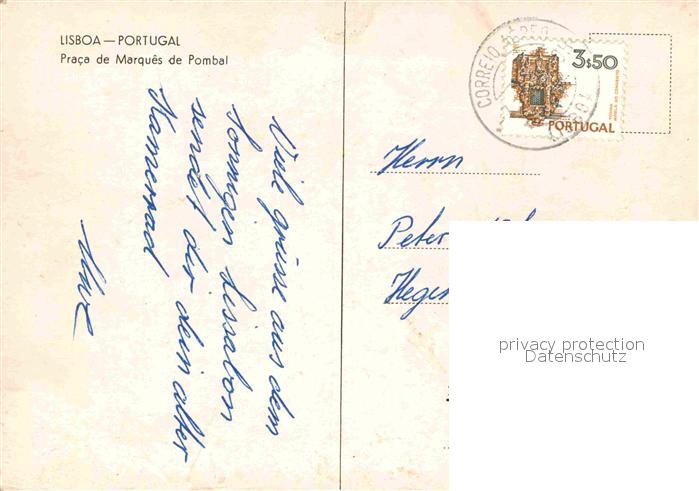 LISBOA — PORTUGAL
Praça de Marquês de Pombal
Viele grüsse aus dem
sonnigen Lissabon
sendet dir dein alter
Kamerad
CORREIO AÉREO
LISBOA
3$50
PORTUGAL
Herrn
Peter
privacy protection
Datenschutz